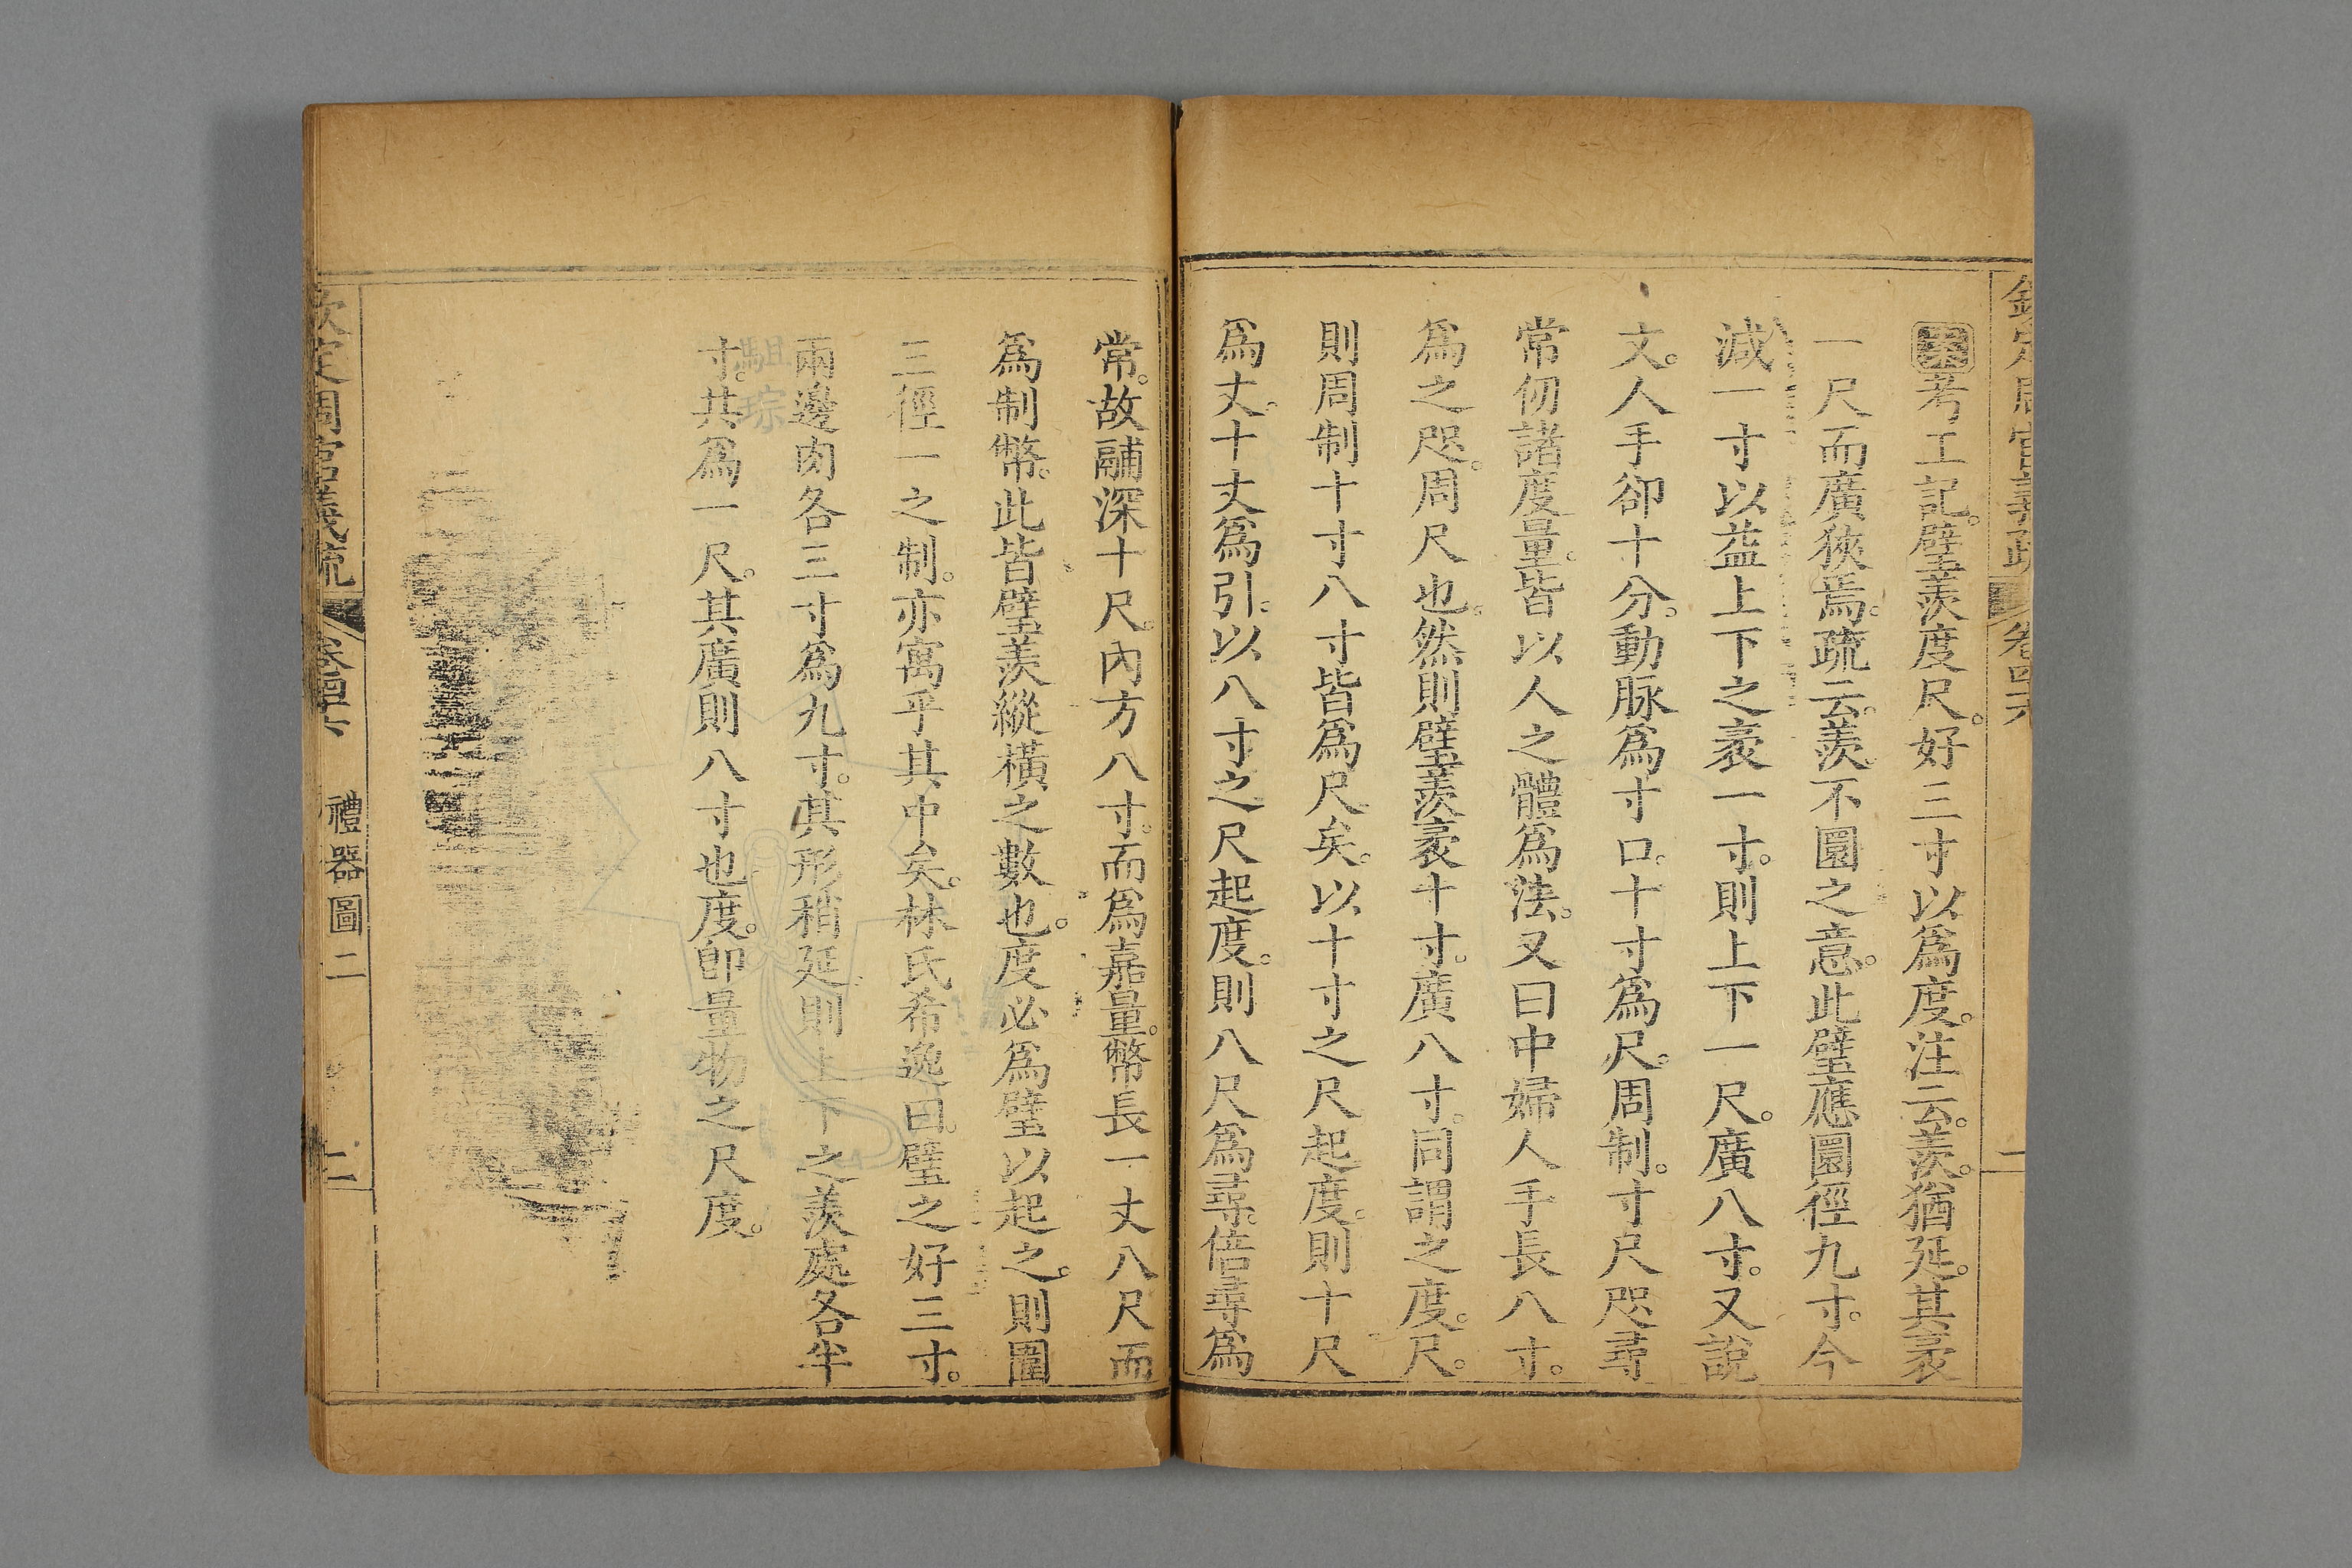 欽定周官義疏 卷四六 一
考工記。璧羨度尺。好三寸以為度。注云。羨。猶延。其袤
一尺而廣狹焉。疏云。羨。不圜之意。此璧應圜徑九寸。今
減一寸以益上下之袤一寸。則上下一尺。廣八寸。又說
文。人手卻十分。動脉為寸口。十寸為尺。周制。寸尺咫尋
常仞諸度量。皆以人之體為法。又曰中婦人手長八寸。
為之咫。周尺也。然則璧羨袤十寸。廣八寸。同謂之度。尺。
則周制十寸八寸皆為尺矣。以十寸之尺起度。則十尺
為丈。十丈為引。以八寸之尺起度。則八尺為尋。倍尋為
常。故鬴深十尺。內方八寸。而為嘉量。幣長一丈八尺而
為制幣。此皆璧羨縱橫之數也。度必為璧以起之。則圍
三徑一之制。亦寓乎其中矣。林氏希逸曰。璧之好三寸。
兩邊肉各三寸為九寸。其形稍延。則上下之羨處各半
寸。共為一尺。其廣則八寸也。度。卽量物之尺度。
駔琮
欽定周官義疏 卷四六 禮器圖二 二